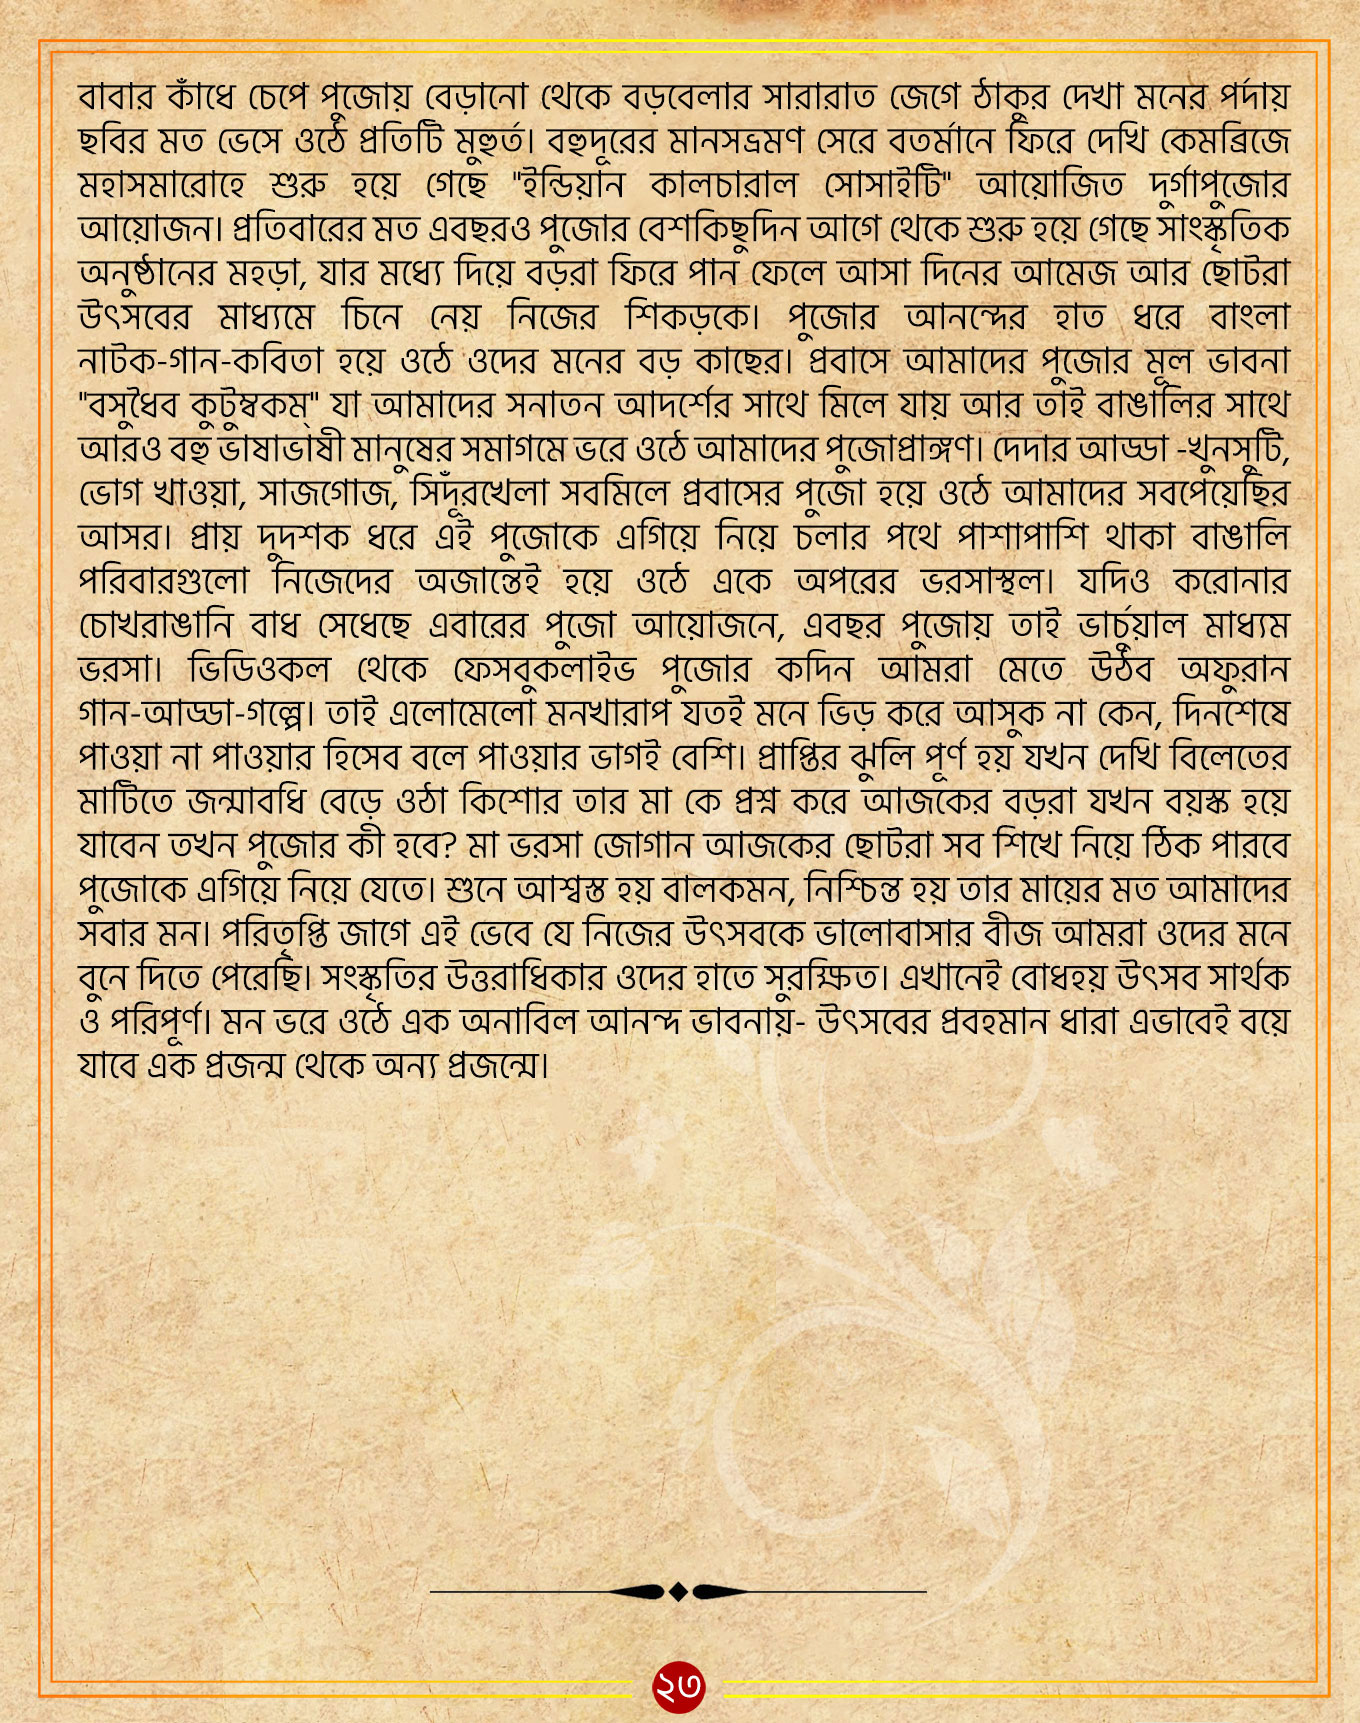 বাবার কাঁধে চেপে পুজোয় বেড়ানো থেকে বড়বেলার সারারাত জেগে ঠাকুর দেখা মনের পর্দায়
ছবির মত ভেসে ওঠে প্রতিটি মুহুর্ত। বহুদূরের মানসভ্রমণ সেরে বতর্মানে ফিরে দেখি কেমব্রিজে
মহাসমারোহে শুরু হয়ে গেছে "ইন্ডিয়ান কালচারাল সোসাইটি" আয়োজিত দুর্গাপুজোর
আয়োজন। প্রতিবারের মত এবছরও পুজোর বেশকিছুদিন আগে থেকে শুরু হয়ে গেছে সাংস্কৃতিক
অনুষ্ঠানের মহড়া, যার মধ্যে দিয়ে বড়রা ফিরে পান ফেলে আসা দিনের আমেজ আর ছোটরা
উৎসবের মাধ্যমে চিনে নেয় নিজের শিকড়কে। পুজোর আনন্দের হাত ধরে বাংলা
নাটক-গান-কবিতা হয়ে ওঠে ওদের মনের বড় কাছের। প্রবাসে আমাদের পুজোর মূল ভাবনা
"বসুধৈব কুটুম্বকম্" যা আমাদের সনাতন আদর্শের সাথে মিলে যায় আর তাই বাঙালির সাথে
আরও বহু ভাষাভাষী মানুষের সমাগমে ভরে ওঠে আমাদের পুজোপ্রাঙ্গণ। দেদার আড্ডা -খুনসুটি,
ভোগ খাওয়া, সাজগোজ, সিদূঁরখেলা সবমিলে প্রবাসের পুজো হয়ে ওঠে আমাদের সবপেয়েছির
আসর। প্রায় দুদশক ধরে এই পুজোকে এগিয়ে নিয়ে চলার পথে পাশাপাশি থাকা বাঙালি
পরিবারগুলো নিজেদের অজান্তেই হয়ে ওঠে একে অপরের ভরসাস্থল। যদিও করোনার
চোখরাঙানি বাধ সেধেছে এবারের পুজো আয়োজনে, এবছর পুজোয় তাই ভার্চুয়াল মাধ্যম
ভরসা। ভিডিওকল থেকে ফেসবুকলাইভ পুজোর কদিন আমরা মেতে উঠব অফুরান
গান-আড্ডা-গল্পে। তাই এলোমেলো মনখারাপ যতই মনে ভিড় করে আসুক না কেন, দিনশেষে
পাওয়া না পাওয়ার হিসেব বলে পাওয়ার ভাগই বেশি। প্রাপ্তির ঝুলি পূর্ণ হয় যখন দেখি বিলেতের
মাটিতে জন্মাবধি বেড়ে ওঠা কিশোর তার মা কে প্রশ্ন করে আজকের বড়রা যখন বয়স্ক হয়ে
যাবেন তখন পুজোর কী হবে? মা ভরসা জোগান আজকের ছোটরা সব শিখে নিয়ে ঠিক পারবে
পুজোকে এগিয়ে নিয়ে যেতে। শুনে আশ্বস্ত হয় বালকমন, নিশ্চিন্ত হয় তার মায়ের মত আমাদের
সবার মন। পরিতৃপ্তি জাগে এই ভেবে যে নিজের উৎসবকে ভালোবাসার বীজ আমরা ওদের মনে
বুনে দিতে পেরেছি। সংস্কৃতির উত্তরাধিকার ওদের হাতে সুরক্ষিত। এখানেই বোধহয় উৎসব সার্থক
ও পরিপূর্ণ। মন ভরে ওঠে এক অনাবিল আনন্দ ভাবনায়- উৎসবের প্রবহমান ধারা এভাবেই বয়ে
যাবে এক প্রজন্ম থেকে অন্য প্রজন্মে।
২৩